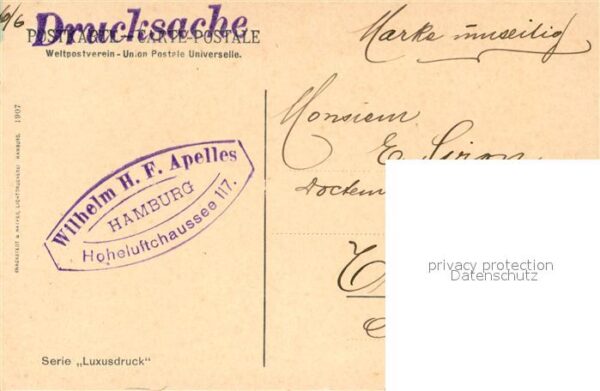 6/6
Drucksache
POSTKARTE - CARTE POSTALE
Weltpostverein - Union Postale Universelle.
Marke umseitig
Monsieur
E.
Docteur
Wilhelm H. F. Apelles
HAMBURG
Hoheluftchaussee 117.
KNACKSTEDT & NÄTHER, LICHTDRUCKEREI HAMBURG. 1907
privacy protection
Datenschutz
Serie „Luxusdruck"